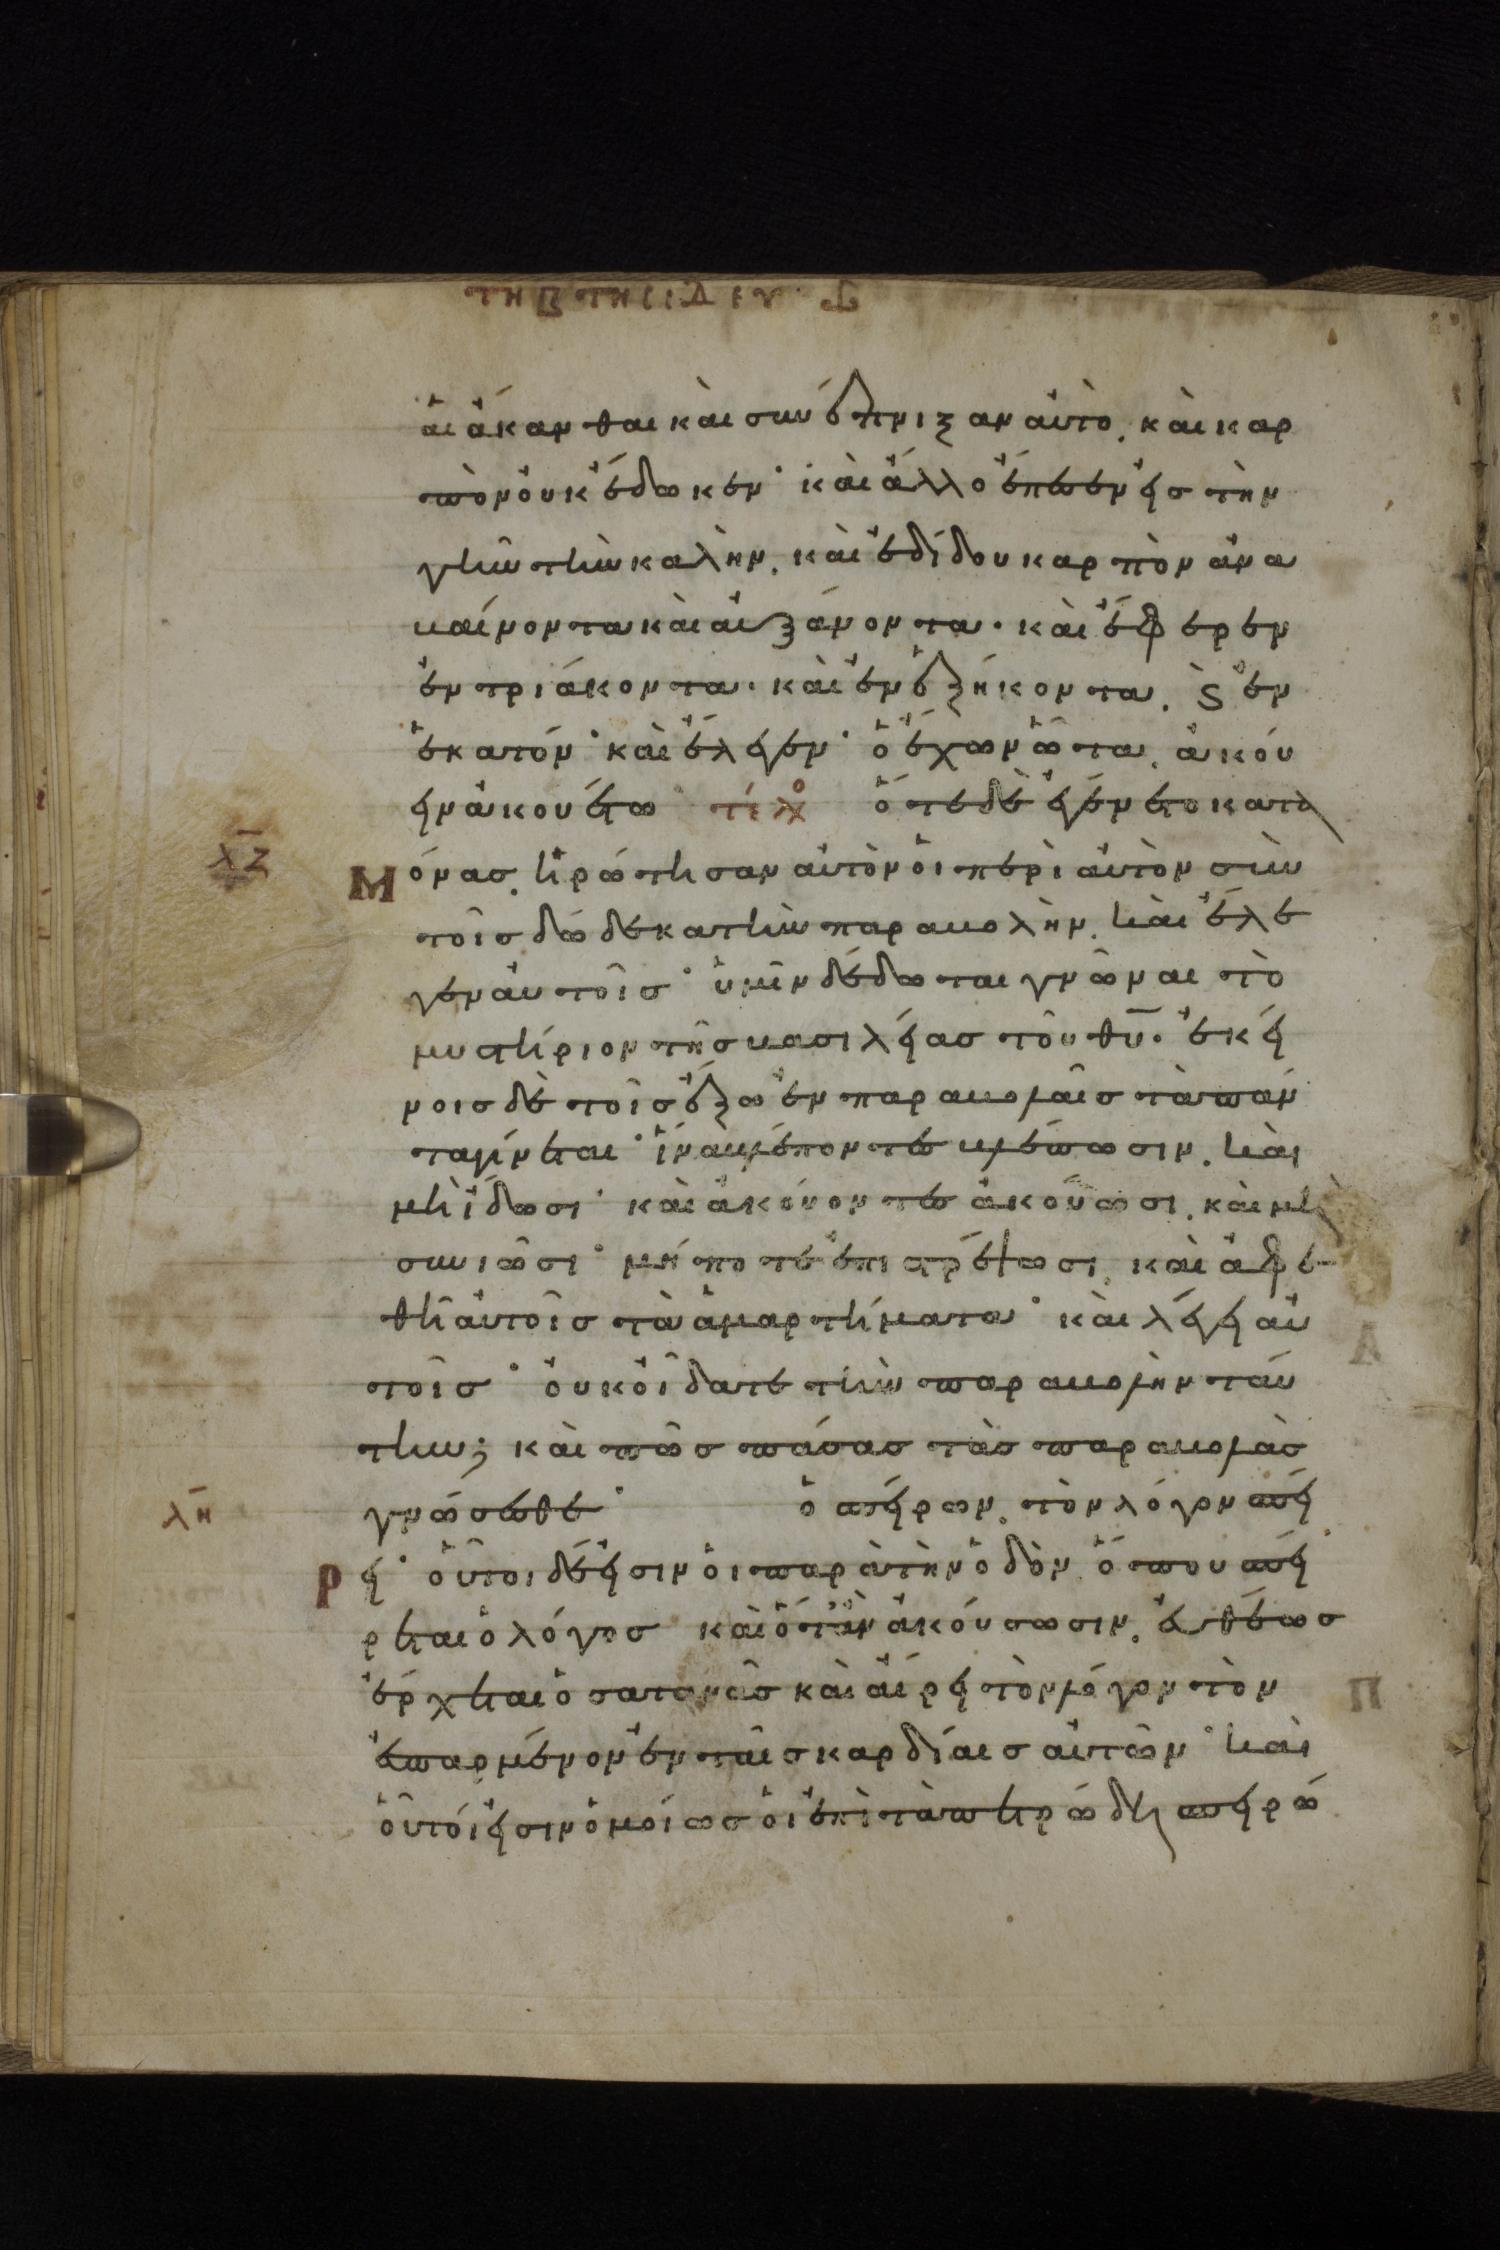 αἱ ἄκανθαι καὶ συνέπνιξαν αὐτὸ. καὶ καρ
πὸν οὐκ ἔδωκεν· καὶ ἄλλο ἔπεσεν εἰς τὴν
γῆν τὴν καλὴν. καὶ ἐδίδου καρπὸν ἀνα
βαίνοντα καὶ αὐξάνοντα· καὶ ἔφερεν
ἐν τριάκοντα· καὶ ἐν ἑξήκοντα. ϛ ἐν
ἑκατόν· καὶ ἔλεγεν· ὁ ἔχων ὦτα. ἀκού
ειν ἀκουέτω τέλο ὅτε δὲ ἐγένετο κατὰ
λζ
Μόνας. ἠρώτησαν αὐτὸν οἱ περὶ αὐτὸν σὺν
τοῖς δώδεκα τὴν παραβολὴν. καὶ ἔλε
γεν αὐτοῖς· ὑμῖν δέδωται γνῶναι τὸ
μυστήριον τῆς βασιλείας τοῦ θυ. ἐκεί
νοις δὲ τοῖς ἔξω ἐν παραβολαῖς τὰ πάν
τα γίνεται· ἵνα βλέποντες βλέπωσιν. καὶ
μὴ ἴδωσι· καὶ ἀκούοντες ἀκούωσι. καὶ μὴ
συνιῶσι· μήποτε ἐπιστρέψωσι. καὶ ἀφε
θῆ αὐτοῖς τὰ ἁμαρτήματα· καὶ λέγει αὐ
τοῖς· οὐκ οἴδατε τὴν παραβολὴν ταύ
την; καὶ πῶς πάσας τὰς παραβολὰς
λη
γνώσεσθε· ὁ σπείρων. τὸν λόγον σπεί
Ρει· οὗτοι δέ εἰσιν οἱ παρὰ τὴν ὁδὸν. ὅπου σπεί
ρεται ὁ λόγος καὶ ὅταν ἀκούσωσιν. εὐθέως
ἔρχεται ὁ σατανᾶς καὶ αἴρει τὸν λόγον τὸν
ἐσπαρμένον ἐν ταῖς καρδίαις αὐτῶν· καὶ
οὗτοί εἰσιν ὁμοίως οἱ ἐπὶ τὰ πετρώδη σπειρό